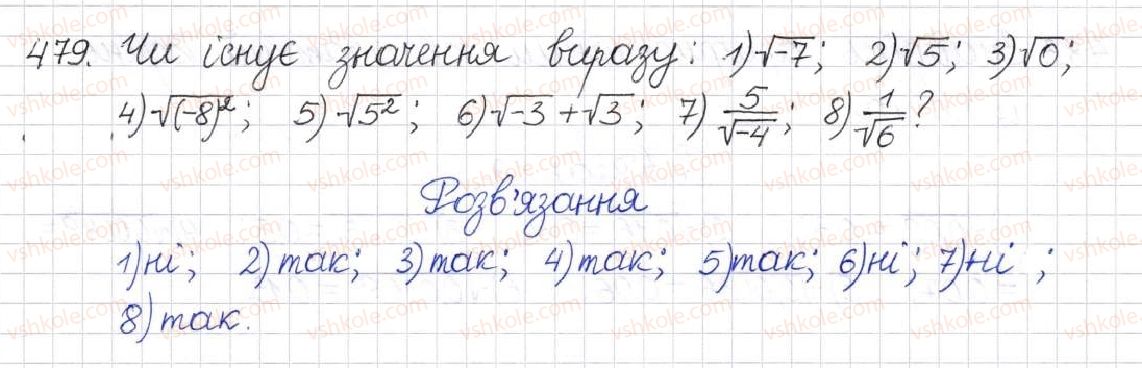 479. Чи існує значення виразу: 1)√-7; 2)√5; 3)√0;
4)√(-8)²; 5)√5²; 6)√-3 + √3; 7) 5/√-4; 8) 1/√6?
Розв'язання
1)ні; 2)так; 3)так; 4)так; 5)так; 6)ні; 7)ні ;
8)так.